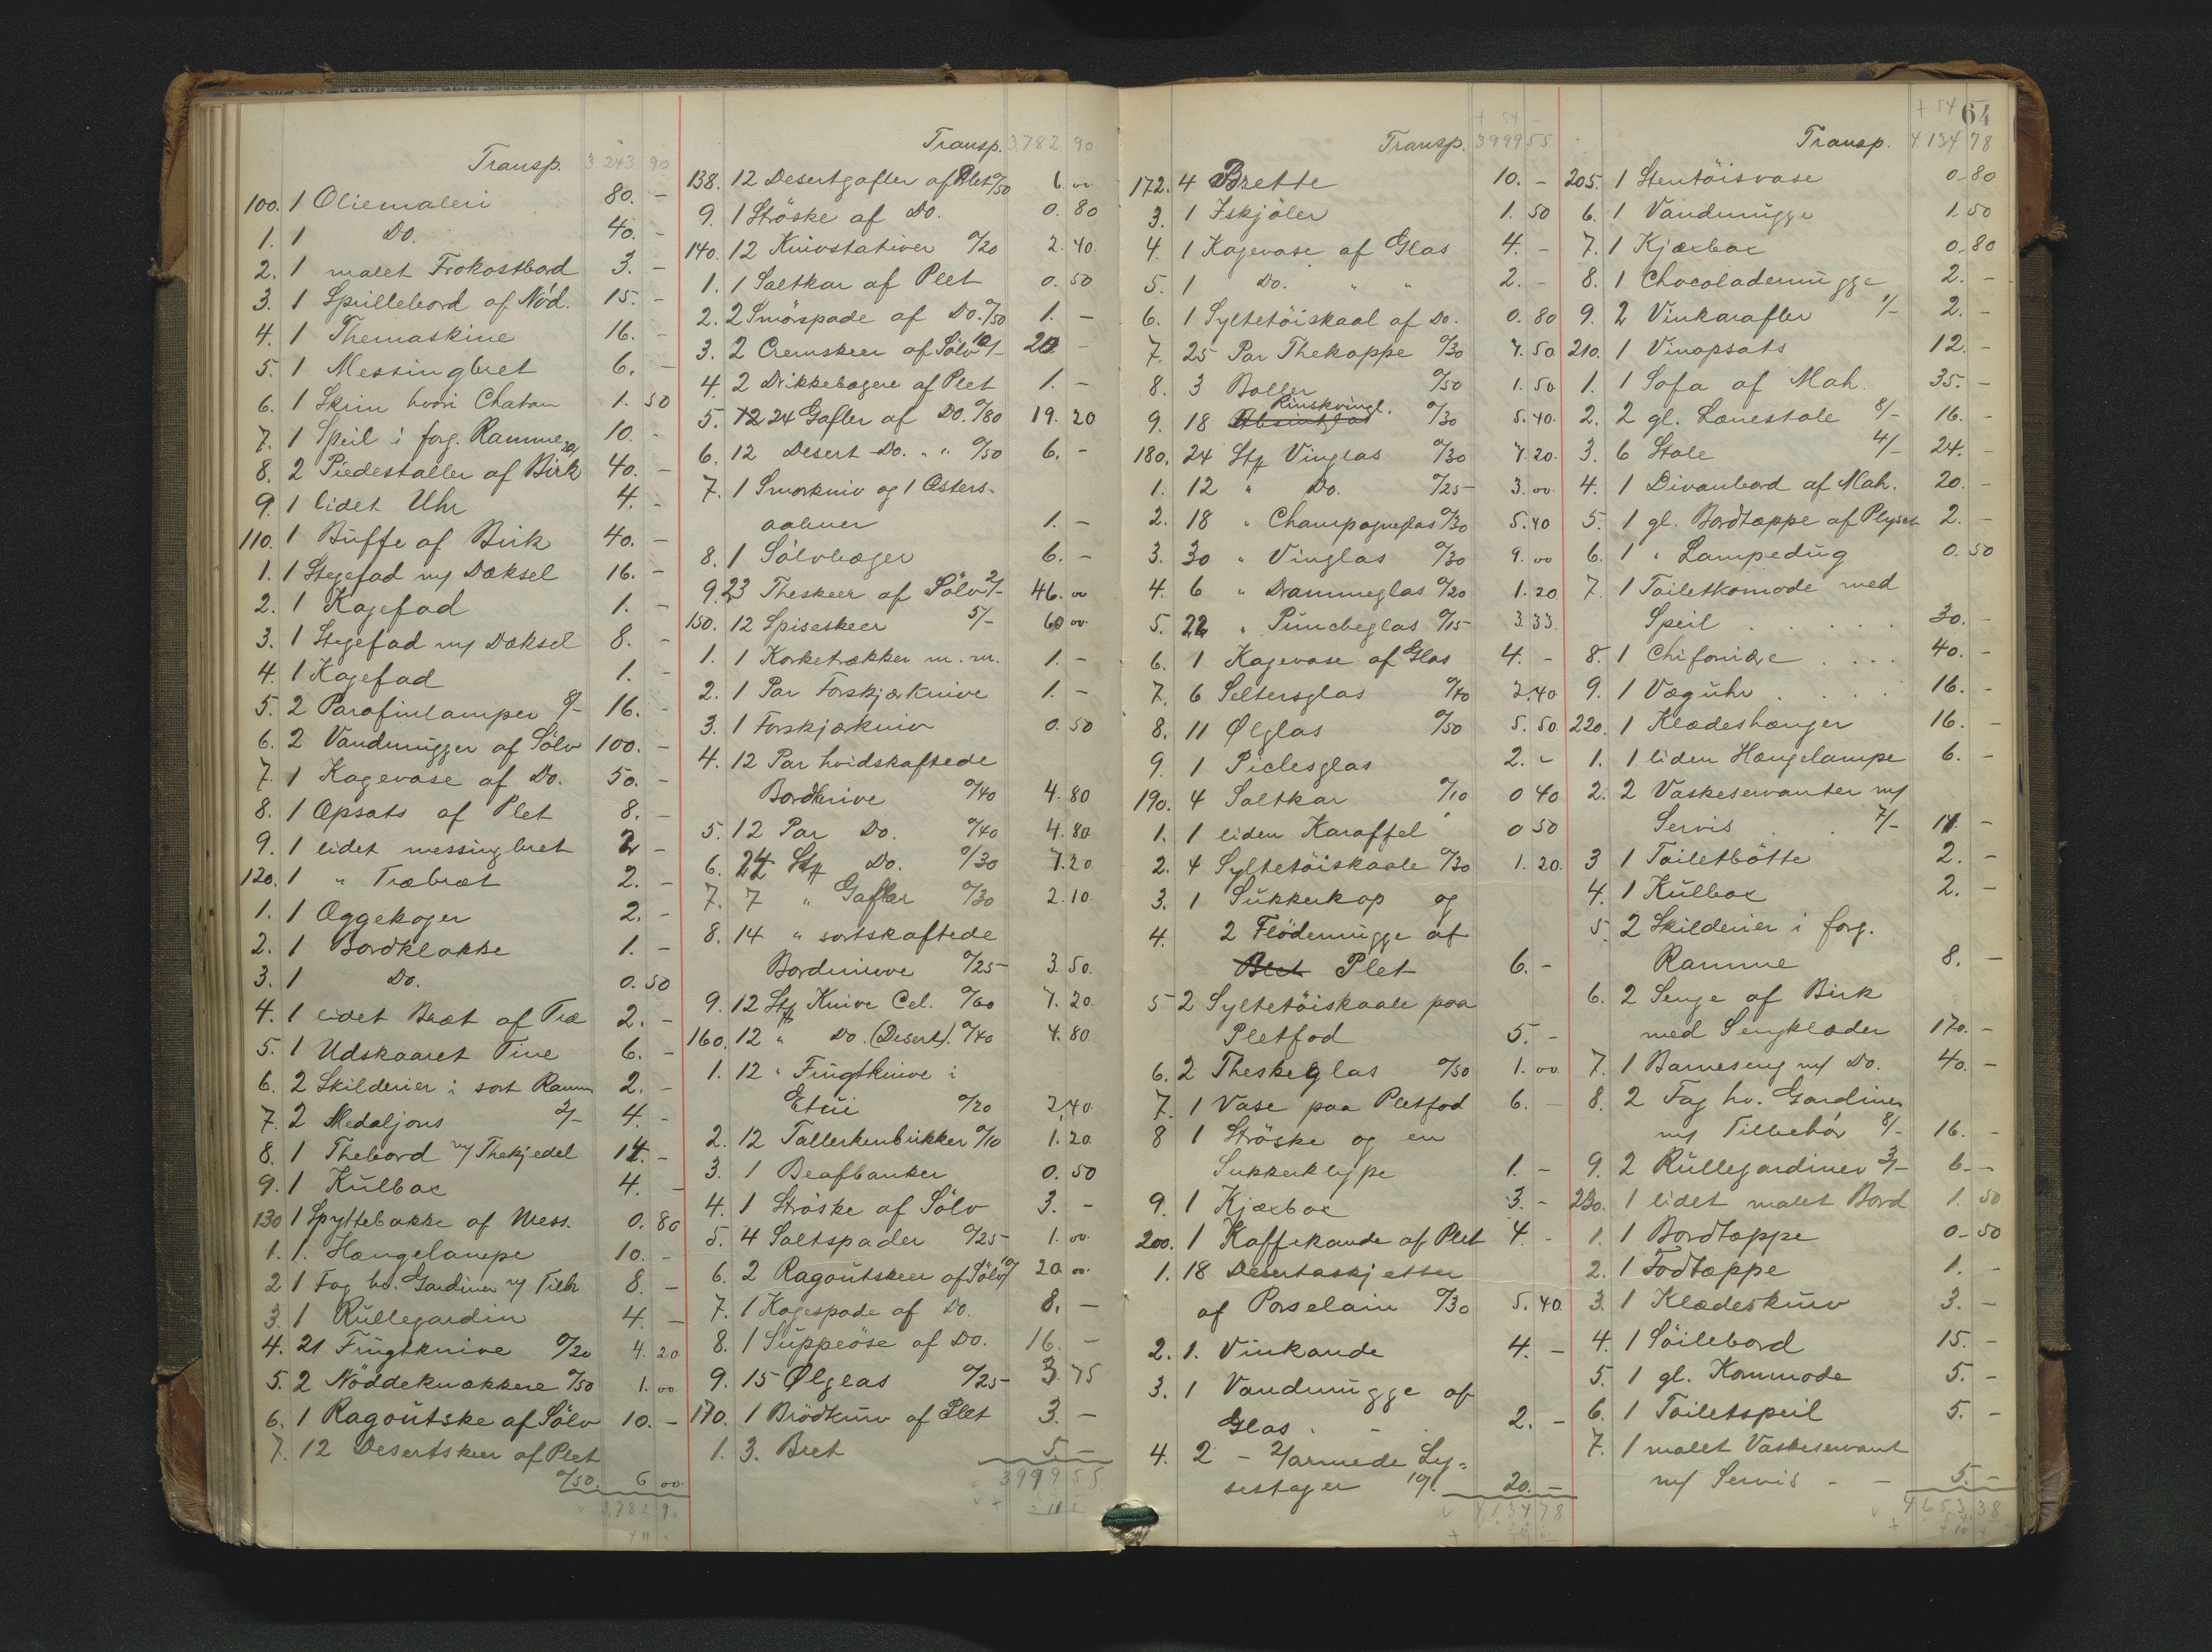 Transp. 3243 90
100. 1 Oliemaleri 80. -
1. 1 Do. 40. -
2. 1 malet Frokostbord 3. -
3. 1 Spillebord af Nød. 15. -
4. 1 Themaskine 16. -
5. 1 Messingbret 6. -
6. 1 Skrin hvori Chatan 1. 50
7. 1 Speil i forg. Ramme 10. -
8. 2 Piedestaller af Birk 20/- 40. -
9. 1 lidet Uhr 4. -
110. 1 Büffe af Birk 40. -
1. 1 Stegefad m/ Dæksel 16. -
2. 1 Kagefad 1. -
3. 1 Stegefad m/ Dæksel 8. -
4. 1 Kagefad 1. -
5. 2 Parafinlamper 8/- 16. -
6. 2 Vandmügger af Sölv 100. -
7. 1 Kagevase af Do. 50. -
8. 1 Opsats af Plet 8. -
9. 1 lidet messingbret 2 -
120. 1 " Træbræt 2. -
1. 1 Æggekoger 2. -
2. 1 Bordklokke 1. -
3. 1 Do. 0. 50
4. 1 lidet Bræt af Træ 2. -
5. 1 Udskaaret Tine 6. -
6. 2 Skilderier i sort Ramm 2. -
7. 2 Medaljons 2/- 4. -
8. 1 Thebord m/ Thekjedel 14. -
9. 1 Külbox 4. -
130 1 Spyttebakke af Mess. 0. 80
1. 1. Hængelampe 10. -
2 1 Fag hv. Gardiner m/ Tilb 8. -
3. 1 Rüllegardin 4. -
4. 21 Früghtknive 0/20 4. 20
5. 2 Nöddeknækkere 0/50 1. 00
6. 1 Ragoütske af Sölv 10. -
7. 12 Desertskeer af Plet
0/50. 6 00
3,782 9.
Transp. 3782 90
138. 12 Desertgafler af Plet 0/50 6. 00
9. 1 Ströske af Do. 0. 80
140. 12 Knivstativer 0/20 2. 40.
1. 1 Saltkar af Plet 0. 50
2. 2 Smörspade af Do. 0/50 1. -
3. 2 Cremskeer af Sölv 10/- 20 -
4. 2 Drikkebægere af Plet 1. -
5. 24 Gafler af Do. 0/80 19. 20
6. 12 Desert Do. " " 0/50 6. -
7. 1 Smörkniv og 1 Østers-
aabner 1. -
8. 1 Sölvbæger 6. -
9. 23 Theskeer af Sölv 2/- 46. 00
150. 12 Spiseskeer 5/- 60 00
1. 1 Korketrækker m. m. 1. -
2. 1 Par Forskjærknive 1. -
3. 1 Forskjækniv 0. 50
4. 12 Par hvidskaftede
Bordknive 0/40 4. 80
5. 12 Par Do. 0/40 4. 80
6. 24 Stk Do. 0/30 7. 20
7. 7 " Gafler 0/30 2. 10.
8. 14 " sortskaftede
Bordknive 0/25 3. 50.
9. 12 Stk Knive Cel. 0/60 7. 20.
160. 12 " Do. (Desert). 0/40 4. 80
1. 12 " Früghtknive i
Etüi 0/20 2,40.
2. 12 Tallerkenbrikker 0/10 1. 20.
3. 1 Beafbanker 0. 50
4. 1 Ströske af Sölv 3. -
5. 4 Saltspader 0/25 1. 00.
6. 2 Ragoütskeer af Sölv 10/ 20 00.
7. 1 Kagespade af Do. 8. -
8. 1 Süppeöse af Do. 16. -
9. 15 Ølglas 0/25 3. 75
170. 1 Brödkürv af Plet 3. -
1. 3. Bret 5. -
3999 55
+ 54 -
Transp. 3999 55
172. 4 Brette 10. -
3. 1 Iskjöler 1. 50
4. 1 Kagevase af Glas 4. -
5. 1 Do. " " 2. -
6. 1 Syltetöiskaal af Do. 0. 80
7. 25 Par Thekoppe 0/30 7. 50
8. 3 Boller 0/50 1. 50
9. 18 Absintglas Rinskvingl. 0/30 5. 40.
180. 24 Stk Vinglas 0/30 7. 20.
1. 12 " Do. 0/25 3. 00.
2. 18 " Champagneglas 0/30 5. 40
3. 30 " Vinglas 0/30 9. 00
4. 6 " Drammeglas 0/20 1. 20
5. 22 " Püncheglas 0/15 3. 33.
6. 1 Kagevase af Glas 4. -
7. 6 Seltersglas 0/40 2.40
8. 11 Ølglas 0/50 5. 50.
9. 1 Piclesglas 2. -
190. 4 Saltkar 0/10 0 40
1. 1 liden Karaffel 0 50
2. 4 Syltetöiskaale 0/30 1. 20.
3. 1 Sükkerkop og
4. 2 Flödemügge af
Blet Plet 6. -
5 2 Syltetöiskaale paa
Pletfod 5. -
6. 2 Theskeglas 0/50 1. 00
7. 1 Vase paa Pletfod 6. -
8 1 Ströske og en
Sukkerklype 1. -
9. 1 Kjæxbox 3. -
200. 1 Kaffekande af Plet 4. -
1. 18 Desertaskjetter
af Porselain 0/30 5. 40.
2. 1. Vinkande 4. -
3. 1 Vandmügge af
Glas. - . 2. -
4. 2 - 2/armede Ly=
sestager 10/. 20. -
4,134 78
64
+ 54
Transp. 4.134 78
205. 1 Stentöisvase 0. 80
6. 1 Vandmügge 1. 50
7. 1 Kjæxbox 0. 80
8. 1 Chocolademügge 2. -
9. 2 Vinkarafler 1/- 2. -
210. 1 Vinopsats 12. -
1. 1 Sofa af Mah. 35. -
2. 2 gl. Lænestole 8/- 16. -
3. 6 Stole 4/- 24. -
4. 1 Divanbord af Mah. 20. -
5. 1 gl. Bordtæppe af Plysch 2. -
6. 1 " Lampedüg 0. 50
7. 1 Toiletkomode med
Speil . . . . . 30. -
8. 1 Chifoniære . . . 40. -
9. 1 Vægühr . . . . 16. -
220. 1 Klædeshænger 16. -
1. 1 liden Hængelampe 6. -
2. 2 Vaskeservanter m/
Servis . . 7/- 14. -
3 1 Toiletbötte 2. -
4. 1 Külbox 2. -
5. 2 Skilderier i forg.
Ramme 8. -
6. 2 Senge af Birk
med Sengklæder 170. -
7. 1 Barneseng m/ Do. 40. -
8. 2 Fag hv. Gardiner
m/ Tilbehör 8/- 16. -
9. 2 Rüllegardiner 3/- 6. -
230. 1 lidet malet Bord 1. 50
1. 1 Bordtæppe 0- 50
2. 1 Fodtæppe 1. -
3. 1 Klædeskürv 3. -
4. 1 Söilebord 15. -
5. 1 gl. Kommode 5. -
6. 1 Toiletspeil 5. -
7. 1 malet Vaskeservant
m/ Servis - - 5. -
4653 38